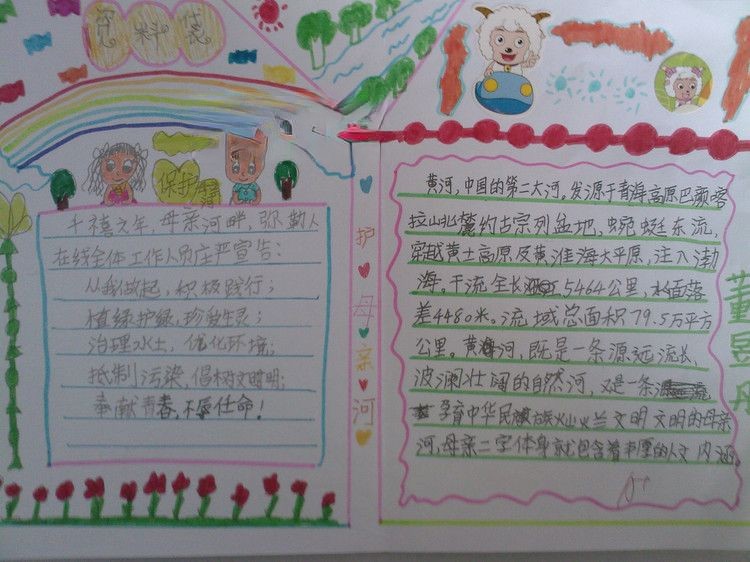 资料袋
保护
千禧之年，母亲河畔，弥勒人
在线全体工作人员庄严宣告：
从我做起，积极践行；
植绿护绿，珍爱生灵；
治理水土，优化环境；
抵制污染，倡树文明；
奉献青春，不辱任命！
护母亲河
黄河，中国的第二大河。发源于青海高原巴颜喀
拉山北麓约古宗列盆地，蜿蜒东流，
穿越黄土高原及黄淮海大平原，注入渤
海。干流全长5464公里，水面落
差4480米。流域总面积79.5万平方
公里。黄河，既是一条源远流长、
波澜壮阔的自然河，又是一条
孕育中华民族灿烂文明文明的母亲
河，母亲二字体身就包含着丰厚的人文内涵。